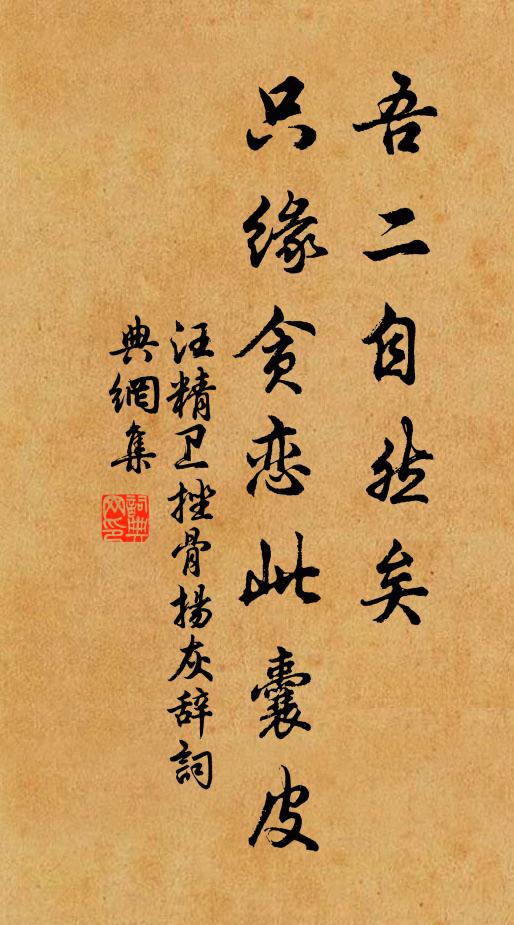 吾二自然矣
只缘貪恋此囊皮
汪精卫挫骨揚灰辞詞
典網集
詞典網印